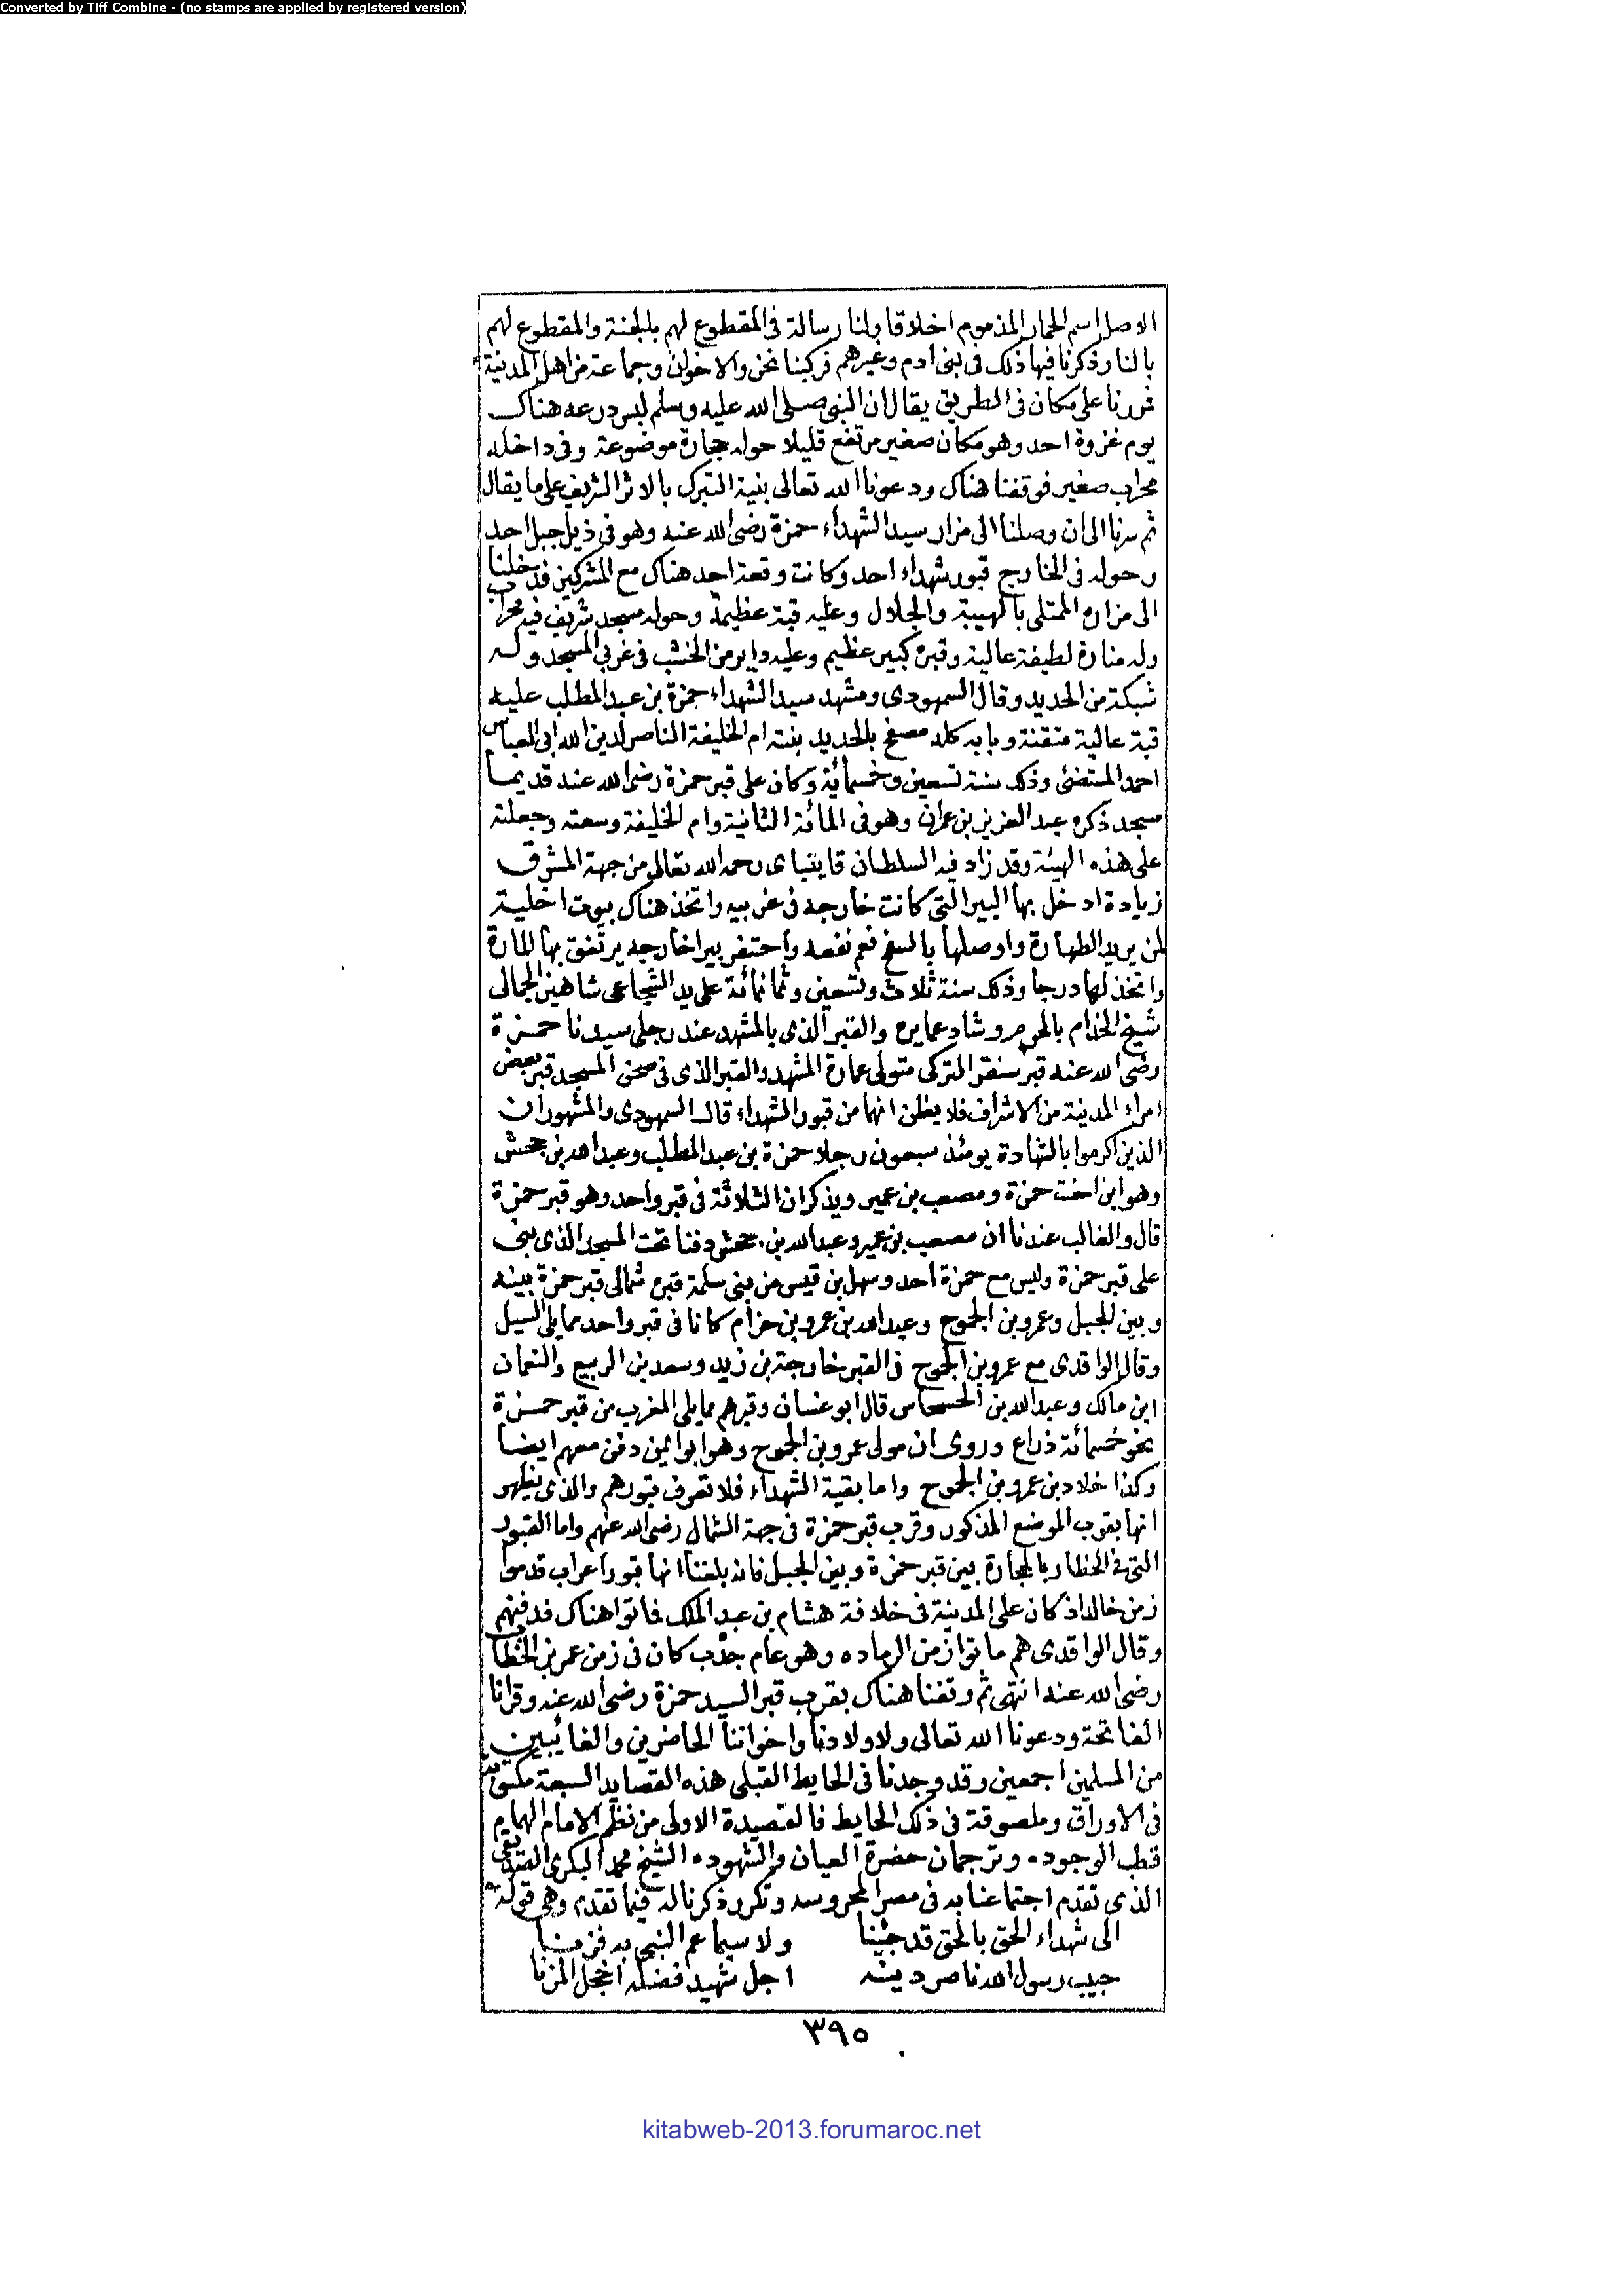 Converted by Tiff Combine - (no stamps are applied by registered version)
الاصل اسم الحمار المذموم اخلاقا ولنا رسالة فى المقطوع لهم بالجنة والمقطوع لهم
بالنار ذكرنا فيها ذلك فى بنى ادم وغيرهم فركبنا نحن والاخوان وجماعة من اهل المدينة
فمررنا على مكان فى الطريق يقال ان النبى صلى الله عليه وسلم لبس درعه هناك
يوم غزوة احد وهو مكان صغير مرتفع قليلا حوله حجارة موضوعة وفى داخله
محراب صغير فوقفنا هناك ودعونا الله تعالى بنية التبرك بالاثر الشريف على ما يقال
ثم سرنا الى ان وصلنا الى مزار سيد الشهداء حمزة رضى الله عنه وهو فى ذيل جبل احد
وحوله فى الخارج قبور شهداء احد وكانت وقعة احد هناك مع المشركين فدخلنا
الى مزاره الممتلى بالهيبة والجلال وعليه قبة عظيمة وحوله مسجد شريف فيه محراب
وله منارة لطيفة عالية وقبره كبير عظيم وعليه داير من الخشب فى غربى المسجد وله
شبكة من الحديد وقال السمهودى ومشهد سيد الشهداء حمزة بن عبد المطلب عليه
قبة عالية متقنة وبابه كله مصفح بالحديد بنته ام الخليفة الناصر لدين الله ابى العباس
احمد المستضئ وذلك سنة تسعين وخمسمائة وكان على قبر حمزة رضى الله عنه قديما
مسجد ذكره عبد العزيز بن عمران وهو فى المائة الثانية وام الخليفة وسعته وجعلته
على هذه الهيئة وقد زاد فيه السلطان قايتباى رحمه الله تعالى من جهة المشرق
زيادة ادخل بها البير التى كانت خارجه فى غربيه واتخذ هناك بيوت اخلية
لمن يريد الطهارة واوصلها بالسفح فعم نفعه واحتفر بيرا خارجه يرتفق بها المارة
واتخذ لها درجا وذلك سنة ثلاث وتسعين وثمانمائة على يد الشجاعى شاهين الجمالى
شيخ الخدام بالحرم وشاد عمايره والقبر الذى بالمشهد عند رجلى سيدنا حمزة
رضى الله عنه قبر سنقر التركى متولى عمارة المشهد والقبر الذى فى صحن المسجد قبر بعض
امراء المدينة من الاشراف فلا يظن انهما من قبور الشهداء قال السمهودى والمشهور ان
الذين اكرموا بالشهادة يومئذ سبعون رجلا حمزة بن عبد المطلب وعبد الله بن جحش
وهو ابن اخت حمزة ومصعب بن عمير ويذكر ان الثلاثة فى قبر واحد وهو قبر حمزة
قال والغالب عندنا ان مصعب بن عمير وعبد الله بن جحش دفنا تحت المسجد الذى بنى
على قبر حمزة وليس مع حمزة احد وسهل بن قيس من بنى سلمة قبره شمالى قبر حمزة بينه
وبين الجبل وعمرو بن الجموح وعبد الله بن عمرو بن حزام كانا فى قبر واحد مما يلى السيل
وقال الواقدى مع عمرو بن الجموح فى القبر خارجة بن زيد وسعد بن الربيع والنعمان
ابن مالك وعبد الله بن الحسحاس قال ابو غسان وقبرهم مما يلى المغرب من قبر حمزة
نحو خمسمائة ذراع وروى ان مولى عمرو بن الجموح وهو ابو ايمن دفن معهم ايضا
وكذا خلاد بن عمرو بن الجموح واما بقية الشهداء فلا تعرف قبورهم والذى يظهر
انها بقرب الموضع المذكور وقرب قبر حمزة فى جهة الشمال رضى الله عنهم واما القبور
التى فى الحظار بالحجارة بين قبر حمزة وبين الجبل فانه بلغنا انها قبور اعراب قدموا
زمن خالد اذ كان على المدينة فى خلافة هشام بن عبد الملك فماتوا هناك فدفنهم
وقال الواقدى هم ماتوا زمن الرماده وهو عام جدب كان فى زمن عمر بن الخطاب
رضى الله عنه انتهى ثم وقفنا هناك بقرب قبر السيد حمزة رضى الله عنه وقرانا
الفاتحة ودعونا الله تعالى ولاولادنا واخواننا الحاضرين والغائبين
من المسلمين اجمعين وقد وجدنا فى الحايط القبلى هذه القصايد السبعة مكتوبة
فى الاوراق وملصوقة فى ذلك الحايط فالقصيدة الاولى من نظم الامام الهمام
قطب الوجود • وترجمان حضرة العيان والشهود • الشيخ محمد البكرى الصديقى
الذى تقدم اجتماعنا به فى مصر المحروسه وتكرر ذكرنا له فيما تقدم وهى قوله
الى شهداء الحق بالحق قد جئنا ولا سيما عم النبى به فزنا
حبيب رسول الله ناصر دينه اجل شهيد فضله اخجل المزنا
٣٩٥
kitabweb-2013.forumaroc.net